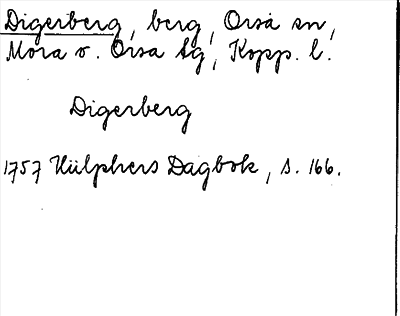 Digerberg, berg, Orsa sn,
Mora o. Orsa tg, Kopp. l.
Digerberg
1757 Hülphers Dagbok, s. 166.